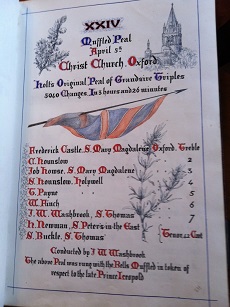 XXIV
Muffled Peal
April 5th
Christ Church, Oxford,
Holt's Original Peal of Grandsire Triples
5040 Changes, In 3 hours and 26 minutes
Frederick Castle, S. Mary Magdalene, Oxford, Treble
C. Hounslow 2
Job Howse, S. Mary Magdalene 3
S. Hounslow, Holywell 4
T. Payne 5
W. Finch 6
J. W. Washbrook, S. Thomas 7
H. Newman, S. Peter's in the East
S. Buckle, S. Thomas Tenor Cwt
Conducted by J W Washbrook
The above Peal was rung with the Bells Muffled in token of
respect to the late Prince Leopold